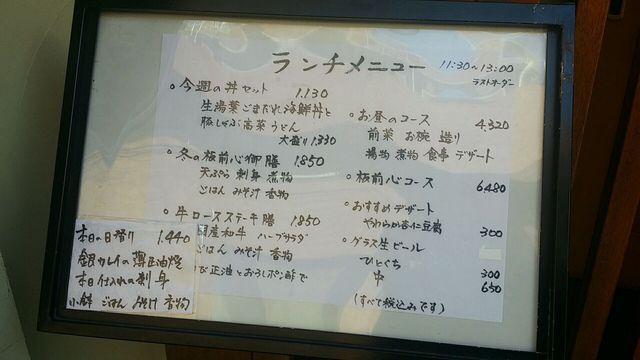 ランチメニュー
11:30〜13:00
ラストオーダー
今週の丼セット 1.130
生湯葉ごまだれ海鮮丼と
豚しゃぶ高菜うどん
大盛り1.330
冬の板前心御膳 1.850
天ぷら 刺身 煮物
ごはん みそ汁 香物
牛ロースステーキ膳 1.850
国産和牛 ハーブサラダ
ごはん みそ汁 香物
び正油とおろしポン酢で
本日の日替り 1.440
銀カレイの薄正油焼
本日仕入れの刺身
小鉢 ごはん みそ汁 香物
お昼のコース 4.320
前菜 お椀 造り
揚物 煮物 食事 デザート
板前心コース 6480
おすすめデザート
やわらか杏仁豆腐 300
グラス生ビール
ひとくち 300
中 650
(すべて税込みです)